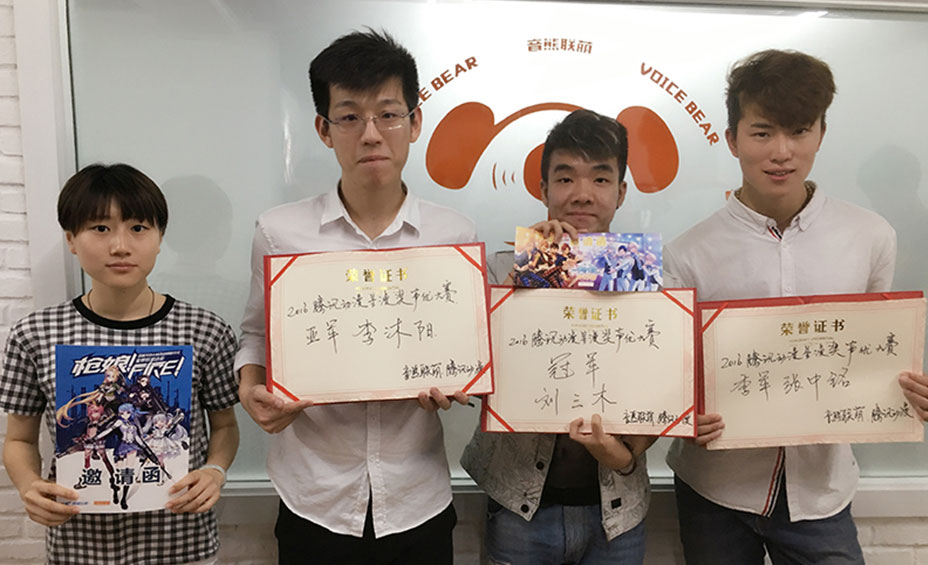 音熊联萌
VOICE BEAR
VOICE BEAR
枪娘!FIRE!
邀请函
荣誉证书
2016腾讯动漫星漫奖声优大赛
亚军 李沐阳
音熊联萌 腾讯动漫
荣誉证书
2016腾讯动漫星漫奖声优大赛
冠军
刘三木
音熊联萌 腾讯动漫
荣誉证书
2016腾讯动漫星漫奖声优大赛
季军 张中铭
音熊联萌 腾讯动漫